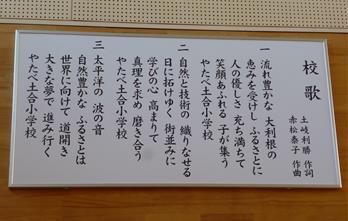 校歌
土岐利勝 作詞
赤松泰子 作曲
一 流れ豊かな 大利根の
恵みを受けし ふるさとに
人の優しさ 充ち満ちて
笑顔あふれる 子が集う
やたべ土合小学校
二 自然と技術の 織りなせる
日に拓けゆく 街並みに
学びの心 高まりて
真理を求め 磨き合う
やたべ土合小学校
三 太平洋の 波の音
自然豊かな ふるさとは
世界に向けて 道開き
大きな夢で 進み行く
やたべ土合小学校